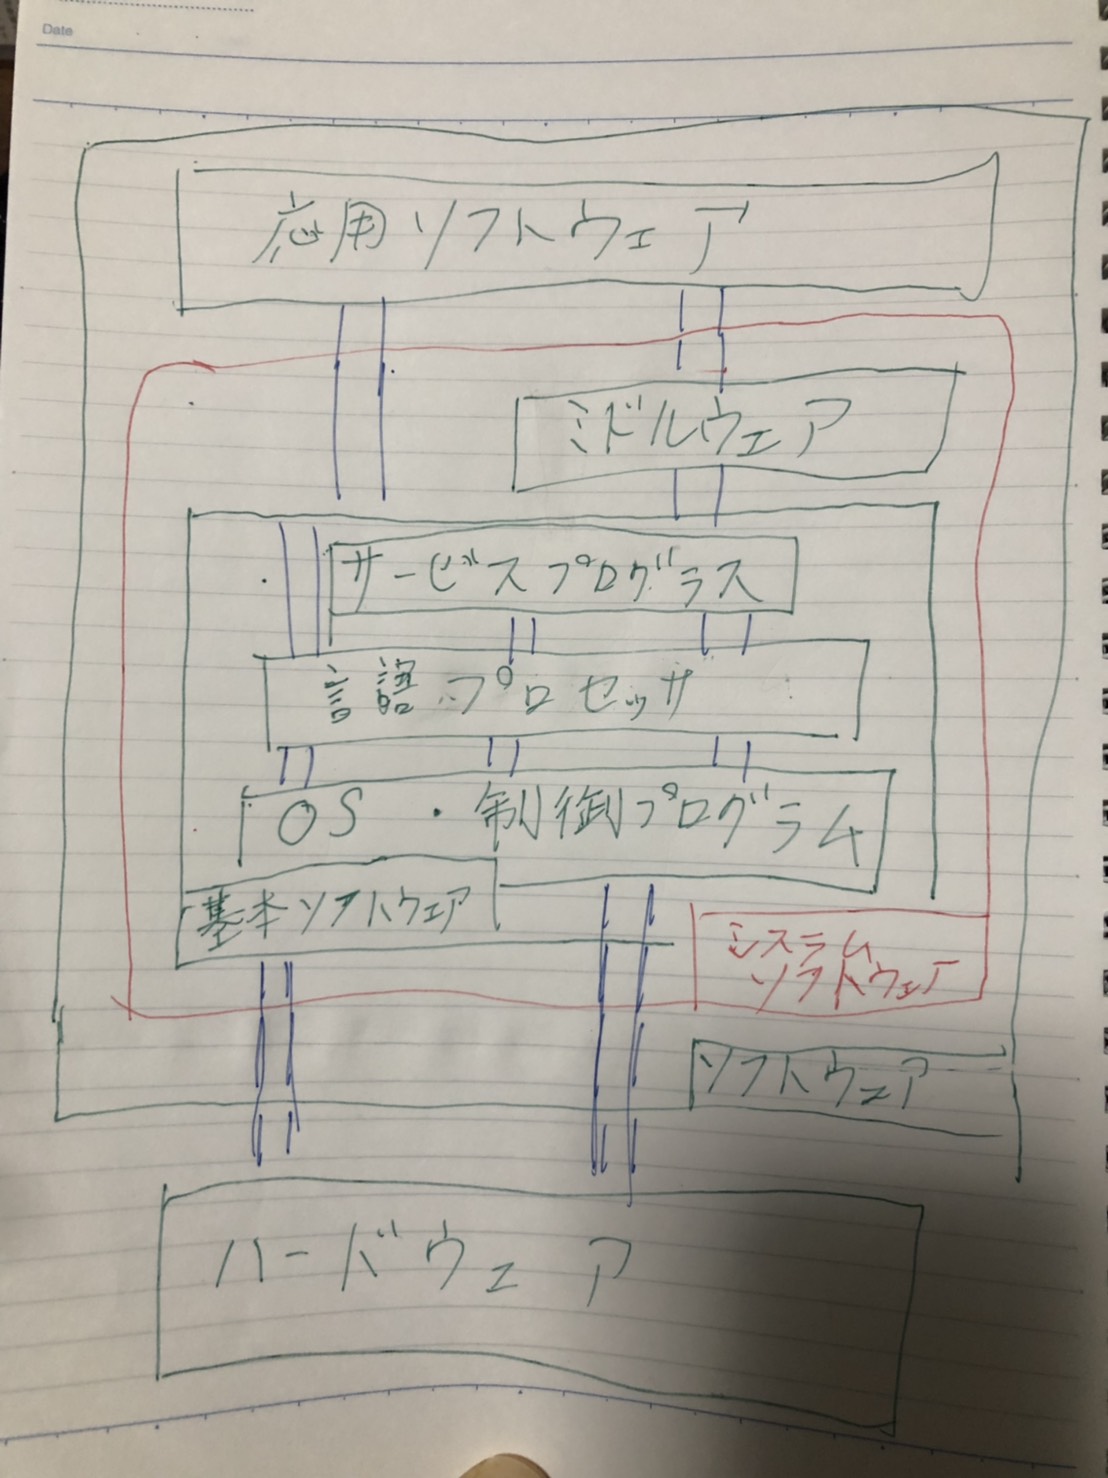 Date
応用ソフトウェア
ミドルウェア
サービスプログラス
言語プロセッサ
OS・制御プログラム
基本ソフトウェア
システム
ソフトウェア
ソフトウェア
ハードウェア